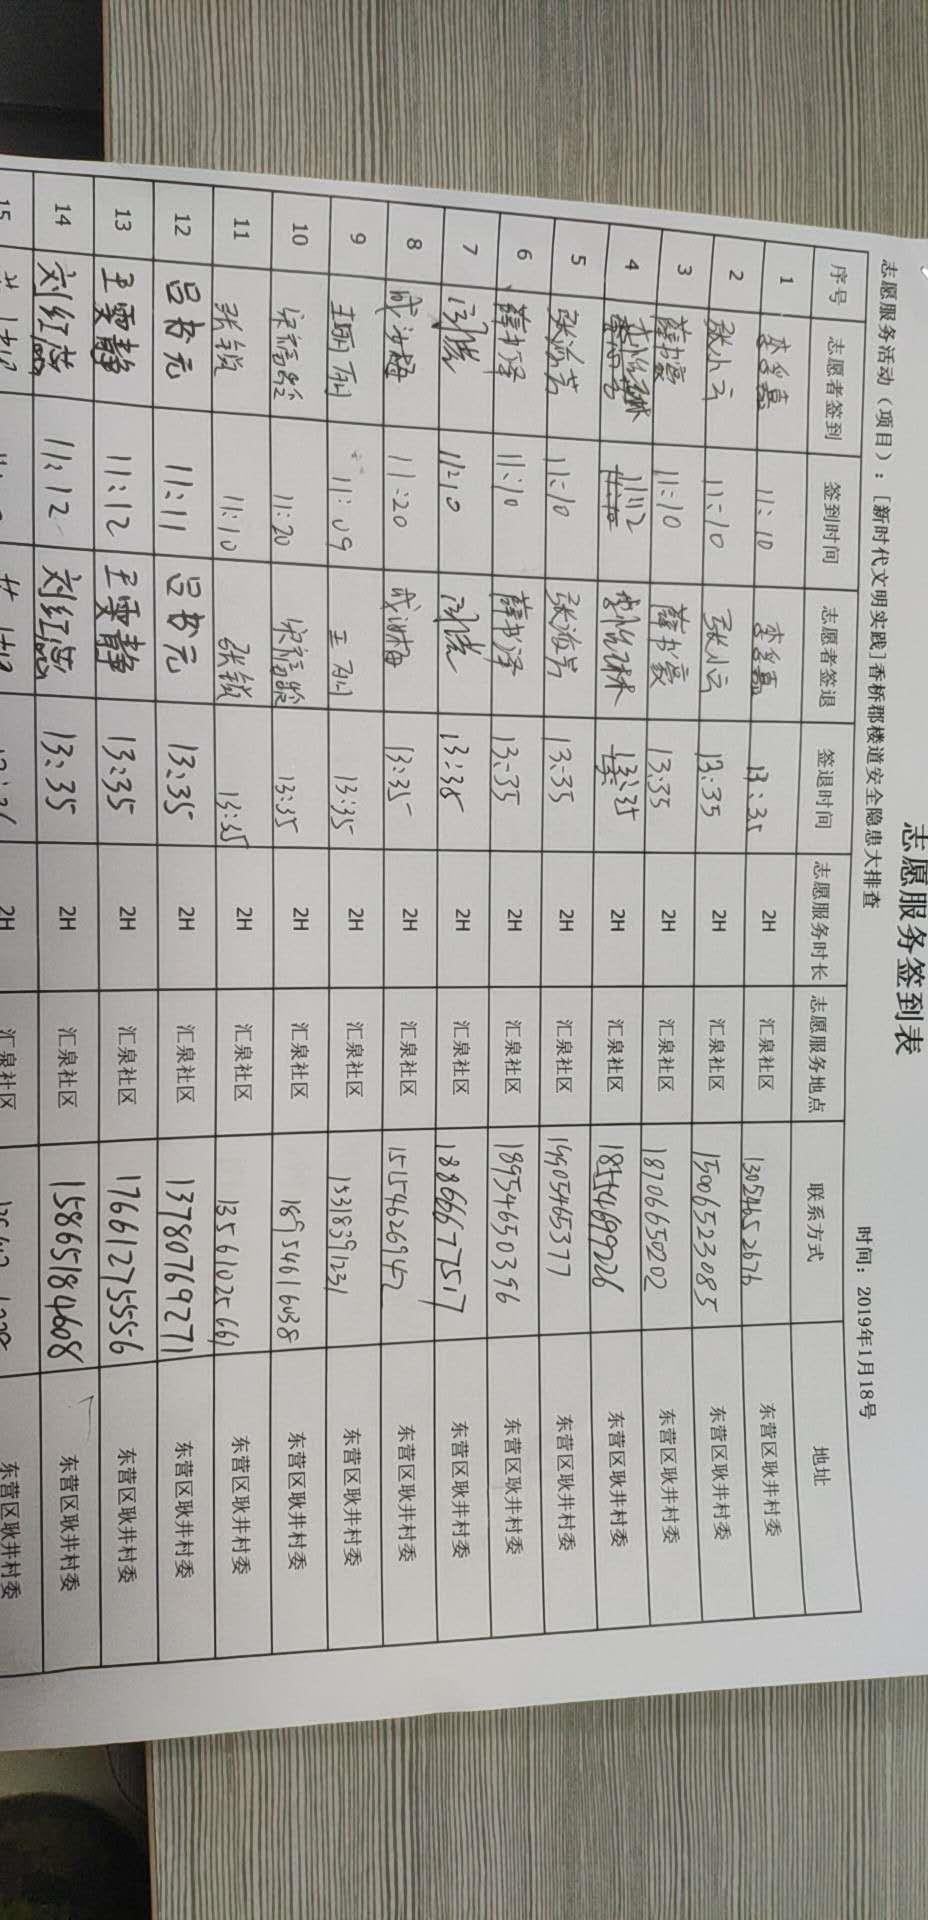 志愿服务签到表
志愿服务活动（项目）：［新时代文明实践］香桥郡楼道安全隐患大排查 时间：2019年1月18号
序号 志愿者签到 签到时间 志愿者签退 签退时间 志愿服务时长 志愿服务地点 联系方式 地址
1 11:10 13:35 2H 汇泉社区 13054652676 东营区耿井村委
2 张小云 11:10 张小云 13:35 2H 汇泉社区 15006523085 东营区耿井村委
3 薛书豪 11:10 薛书豪 13:35 2H 汇泉社区 18706650202 东营区耿井村委
4 11:12 13:35 2H 汇泉社区 东营区耿井村委
5 11:10 13:35 2H 汇泉社区 19905465377 东营区耿井村委
6 薛书泽 11:10 薛书泽 13:35 2H 汇泉社区 18954650396 东营区耿井村委
7 11:10 13:35 2H 汇泉社区 18866677517 东营区耿井村委
8 11:20 13:35 2H 汇泉社区 15154626942 东营区耿井村委
9 11:09 13:35 2H 汇泉社区 15318391231 东营区耿井村委
10 11:20 13:35 2H 汇泉社区 18954616038 东营区耿井村委
11 张锐 11:10 张锐 13:35 2H 汇泉社区 13561025661 东营区耿井村委
12 吕书元 11:11 吕书元 13:35 2H 汇泉社区 13780769271 东营区耿井村委
13 王雯静 11:12 王雯静 13:35 2H 汇泉社区 17661275556 东营区耿井村委
14 刘红蕊 11:12 刘红蕊 13:35 2H 汇泉社区 15865184608 东营区耿井村委
15 2H 汇泉社区 东营区耿井村委